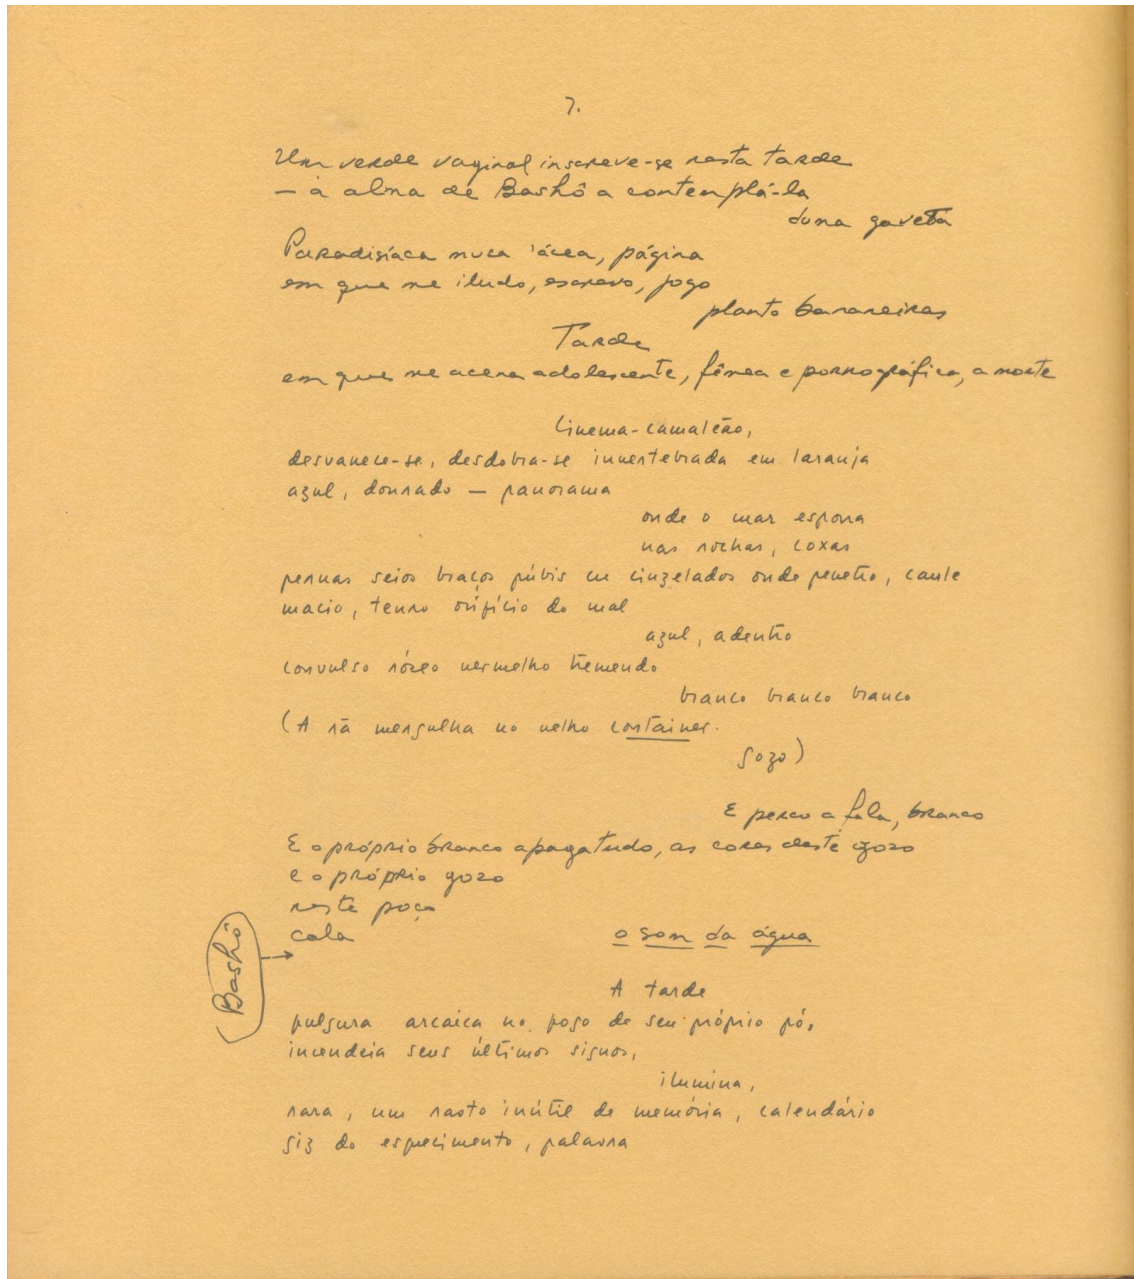 7.
Um verde vaginal inscreve-se nesta tarde
— à alma de Bashô a contemplá-la
duma gaveta
Paradisíaca nuca
em que me iludo, escrevo, jogo
planto bananeiras
Tarde
em que me acena adolescente, fêmea e pornográfica, a morte
Cinema-camaleão,
desvanece-se, desdobra-se invertebrada em laranja
azul, dourado — panorama
onde o mar espoca
nas rochas, coxas
pernas seios braços púbis cu cinzelados onde penetro, caule
macio, tenro orifício do mal
azul, adentro
convulso róseo vermelho tremendo
branco branco branco
(A rã mergulha no velho container.
Gozo)
E perco a fala, branco
E o próprio branco apaga tudo, as cores deste gozo
e o próprio gozo
neste poço
cala o som da água
Bashô
A tarde
fulgura arcaica no fogo de seu próprio pó,
incendeia seus últimos signos,
ilumina,
rara, um rasto inútil de memória, calendário
giz do esquecimento, palavra